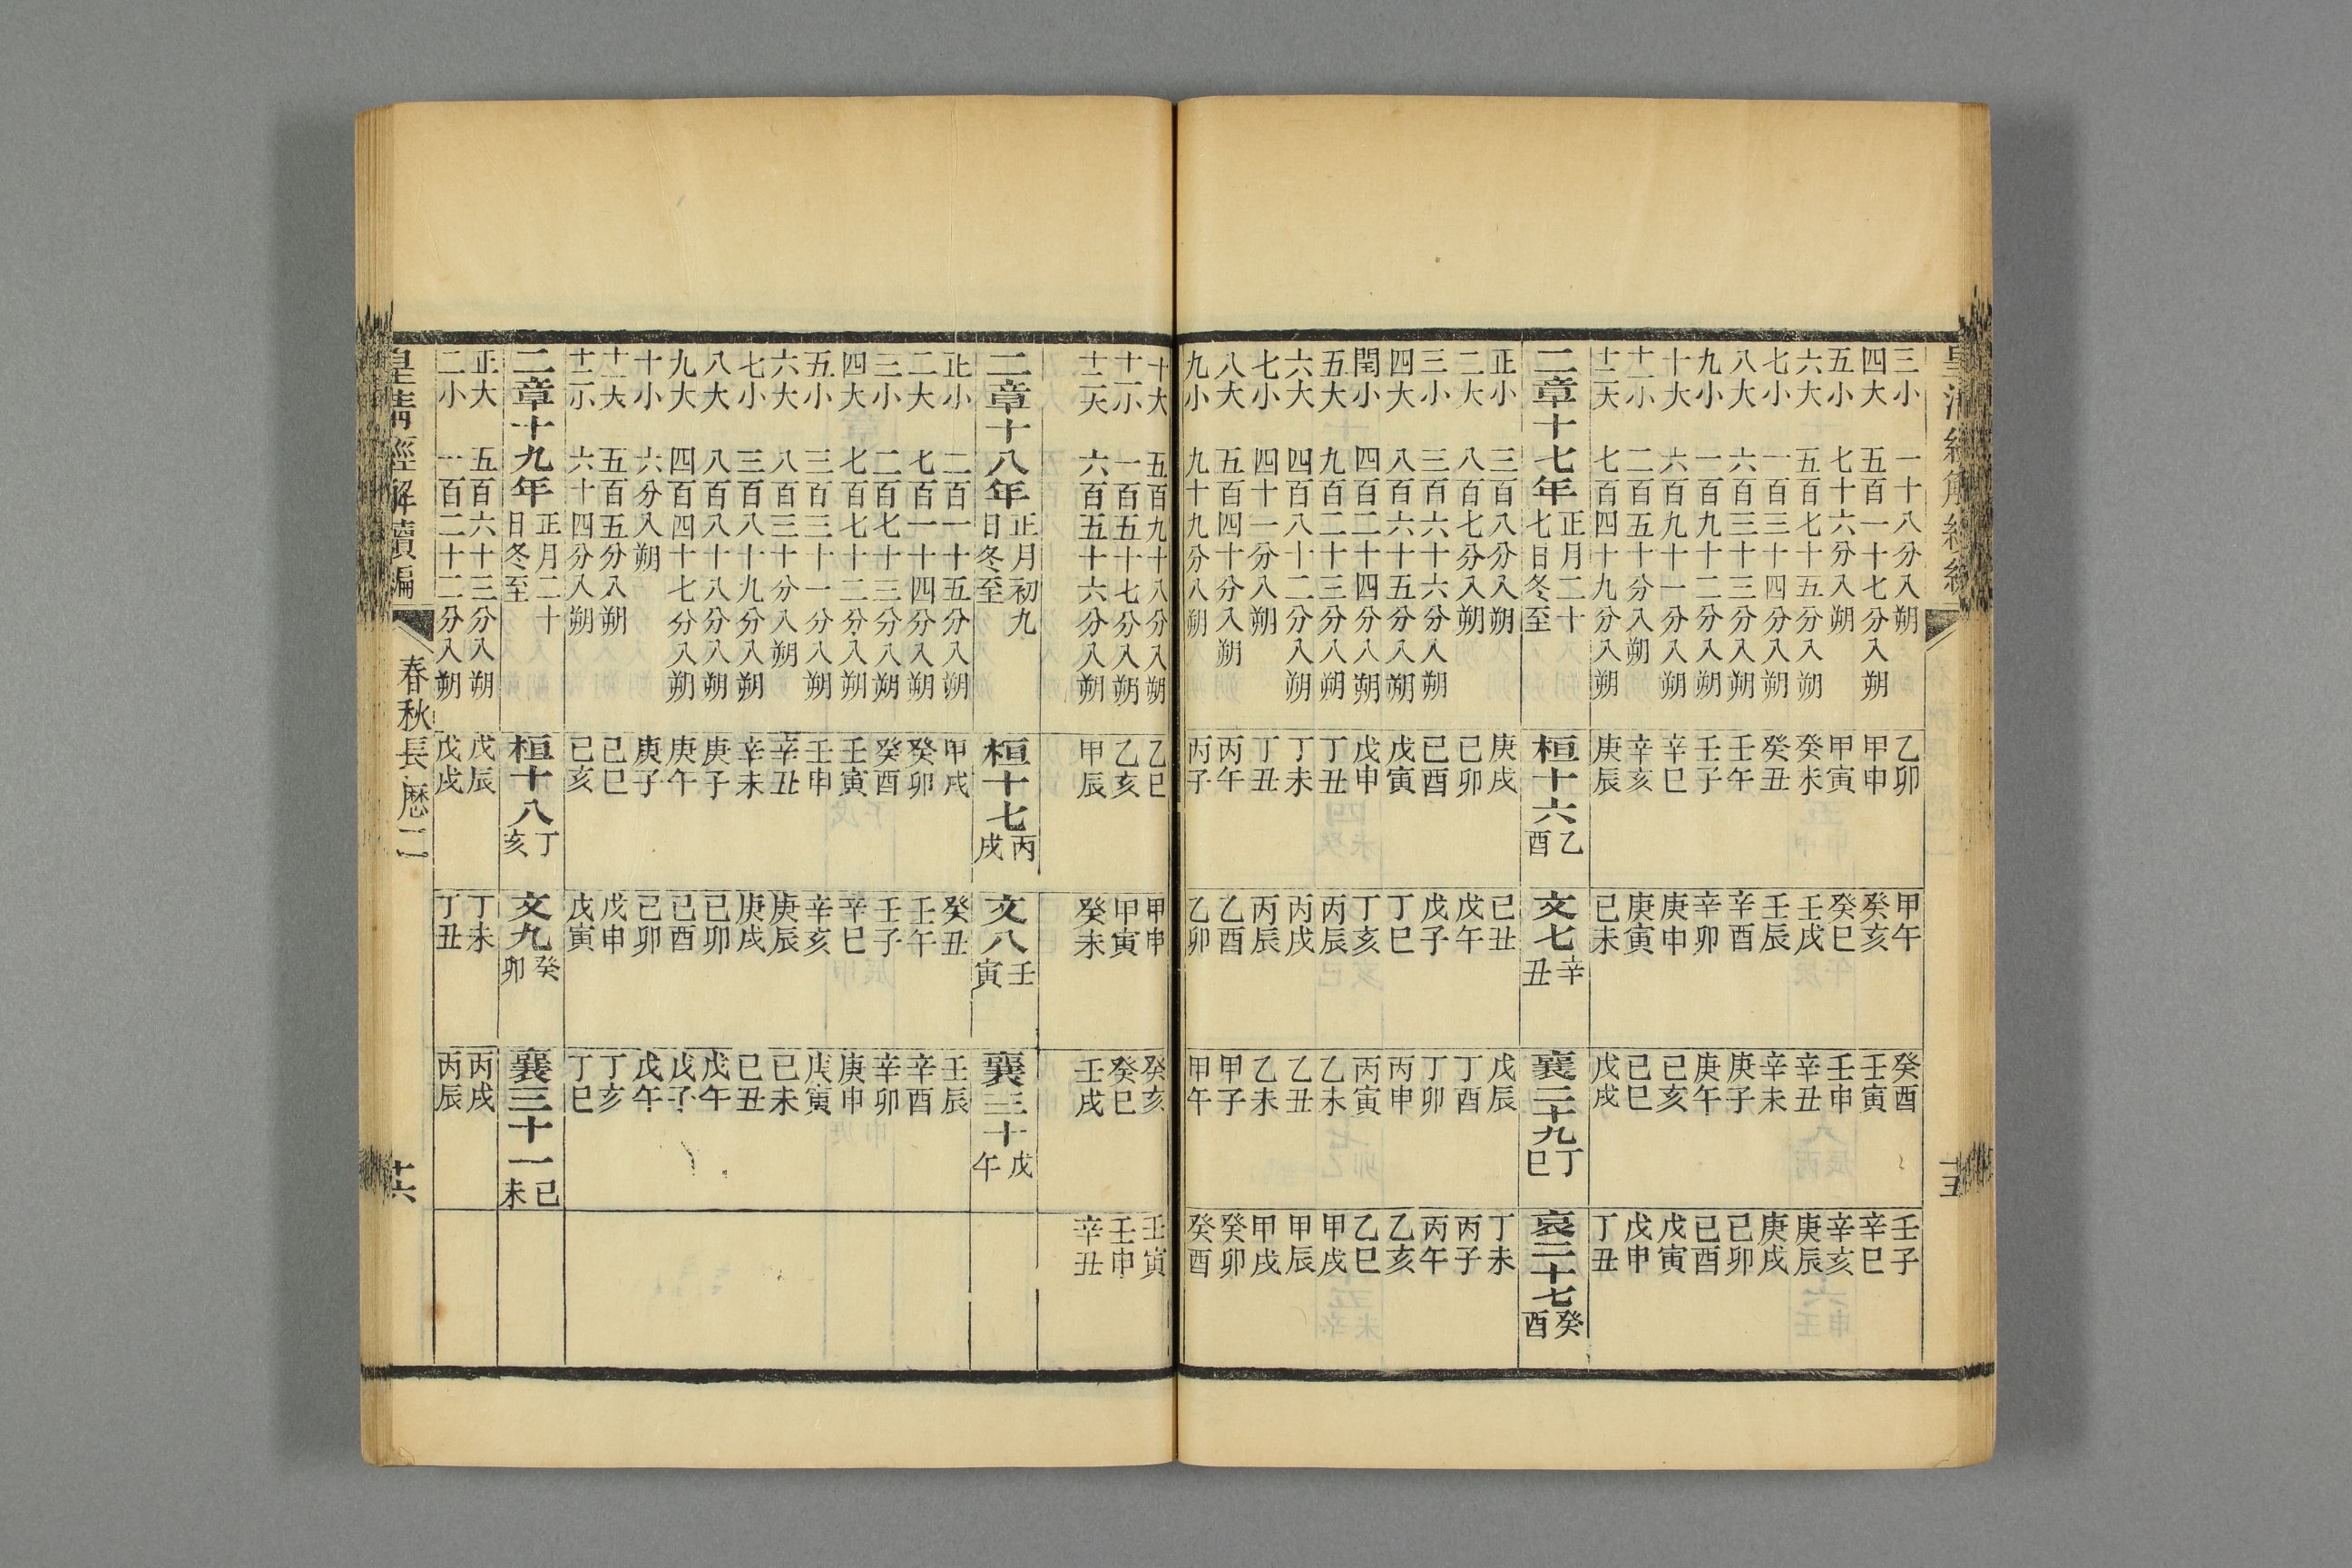 三小 一十八分入朔 乙卯 甲午 癸酉 壬子
四大 五百一十七分入朔 甲申 癸亥 壬寅 辛巳
五小 七十六分入朔 甲寅 癸巳 壬申 辛亥
六大 五百七十五分入朔 癸未 壬戌 辛丑 庚辰
七小 一百三十四分入朔 癸丑 壬辰 辛未 庚戌
八大 六百三十三分入朔 壬午 辛酉 庚子 己卯
九小 一百九十二分入朔 壬子 辛卯 庚午 己酉
十大 六百九十一分入朔 辛巳 庚申 己亥 戊寅
十一小 二百五十分入朔 辛亥 庚寅 己巳 戊申
十二大 七百四十九分入朔 庚辰 己未 戊戌 丁丑
二章十七年 正月二十七日冬至 桓十六 乙酉 文七 辛丑 襄二十九 丁巳 哀二十七 癸酉
正小 三百八分入朔 庚戌 己丑 戊辰 丁未
二大 八百七分入朔 己卯 戊午 丁酉 丙子
三小 三百六十六分入朔 己酉 戊子 丁卯 丙午
四大 八百六十五分入朔 戊寅 丁巳 丙申 乙亥
閏小 四百二十四分入朔 戊申 丁亥 丙寅 乙巳
五大 九百二十三分入朔 丁丑 丙辰 乙未 甲戌
六大 四百八十二分入朔 丁未 丙戌 乙丑 甲辰
七小 四十一分入朔 丁丑 丙辰 乙未 甲戌
八大 五百四十分入朔 丙午 乙酉 甲子 癸卯
九小 九十九分入朔 丙子 乙卯 甲午 癸酉
十大 五百九十八分入朔 乙巳 甲申 癸亥 壬寅
十一小 一百五十七分入朔 乙亥 甲寅 癸巳 壬申
十二大 六百五十六分入朔 甲辰 癸未 壬戌 辛丑
二章十八年 正月初九日冬至 桓十七 丙戌 文八 壬寅 襄三十 戊午
正小 二百一十五分入朔 甲戌 癸丑 壬辰
二大 七百一十四分入朔 癸卯 壬午 辛酉
三小 二百七十三分入朔 癸酉 壬子 辛卯
四大 七百七十二分入朔 壬寅 辛巳 庚申
五小 三百三十一分入朔 壬申 辛亥 庚寅
六大 八百三十分入朔 辛丑 庚辰 己未
七小 三百八十九分入朔 辛未 庚戌 己丑
八大 八百八十八分入朔 庚子 己卯 戊午
九大 四百四十七分入朔 庚午 己酉 戊子
十小 六分入朔 庚子 己卯 戊午
十一大 五百五分入朔 己巳 戊申 丁亥
十二小 六十四分入朔 己亥 戊寅 丁巳
二章十九年 正月二十日冬至 桓十八 丁亥 文九 癸卯 襄三十一 己未
正大 五百六十三分入朔 戊辰 丁未 丙戌
二小 一百二十二分入朔 戊戌 丁丑 丙辰
皇清經解續編 春秋長歷二 十六